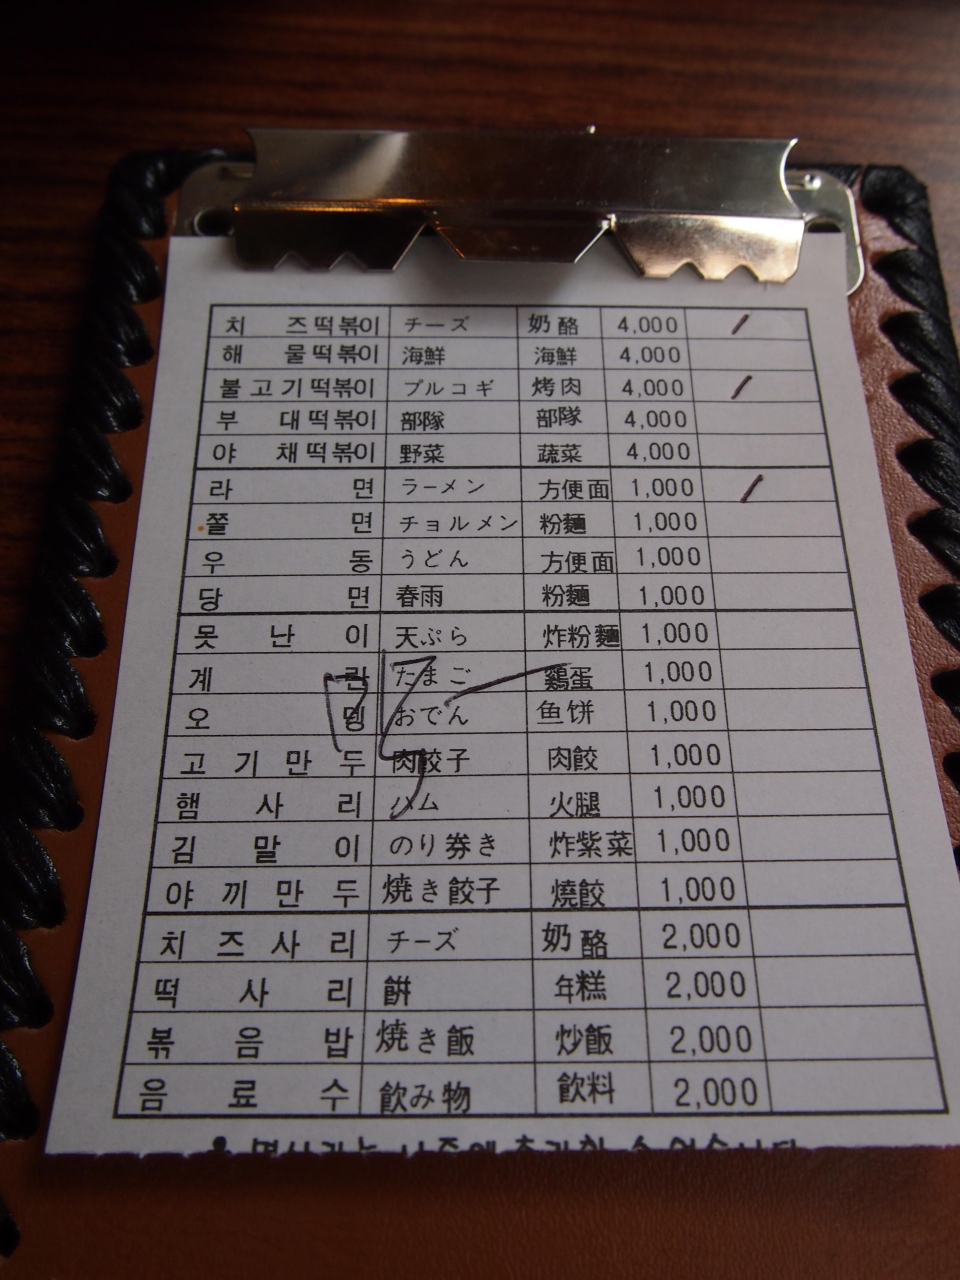 치즈떡볶이 チーズ 奶酪 4,000 /
해물떡볶이 海鮮 海鮮 4,000
불고기떡볶이 プルコギ 烤肉 4,000 /
부대떡볶이 部隊 部隊 4,000
야채떡볶이 野菜 蔬菜 4,000
라면 ラーメン 方便面 1,000 /
쫄면 チョルメン 粉麵 1,000
우동 うどん 方便面 1,000
당면 春雨 粉麵 1,000
못난이 天ぷら 炸粉麵 1,000
계란 たまご 鷄蛋 1,000
오뎅 おでん 鱼饼 1,000
고기만두 肉餃子 肉餃 1,000
햄사리 ハム 火腿 1,000
김말이 のり券き 炸紫菜 1,000
야끼만두 焼き餃子 燒餃 1,000
치즈사리 チーズ 奶酪 2,000
떡사리 餠 年糕 2,000
볶음밥 焼き飯 炒飯 2,000
음료수 飲み物 飲料 2,000